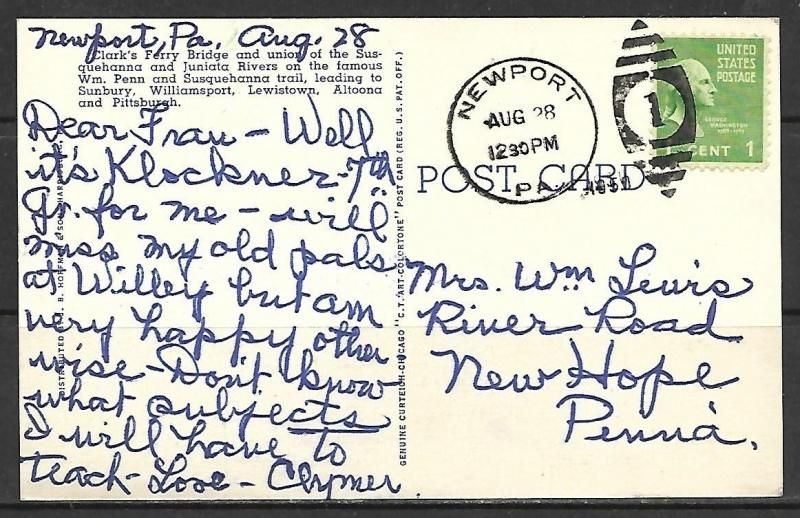 Newport, Pa. Aug. 28
Clark's Ferry Bridge and union of the Sus-
quehanna and Juniata Rivers on the famous
Wm. Penn and Susquehanna trail, leading to
Sunbury, Williamsport, Lewistown, Altoona
and Pittsburgh.
Dear Fran - Well
it's Klockner - 7th
Gr. for me - will
miss my old pals
at Willey but am
very happy other
wise - Don't know
what subjects
I will have to
teach - Love - Clymer
DISTRIBUTED BY J. B. HOFFMAN &
GENUINE CURTEICH-CHICAGO "C.T. ART-COLORTONE" POST CARD (REG. U.S. PAT. OFF.)
POST CARD
NEWPORT
AUG 28
1230 PM
PA.
1951
1
UNITED
STATES
POSTAGE
GEORGE
WASHINGTON
CENT 1
Mrs. Wm Lewis
River Road
New Hope
Penna.